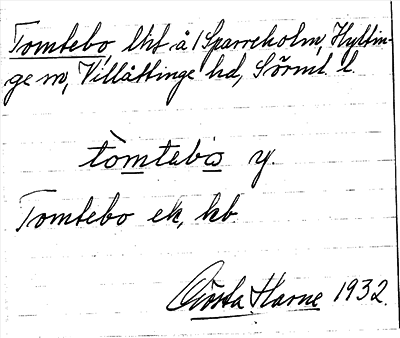 Tomtebo, lht å 1 Sparreholm, Hyltin-
ge sn, Villåttinge hd, Sörml. l.
tòmtebò y.
Tomtebo ek, kb
Gösta Harne 1932.